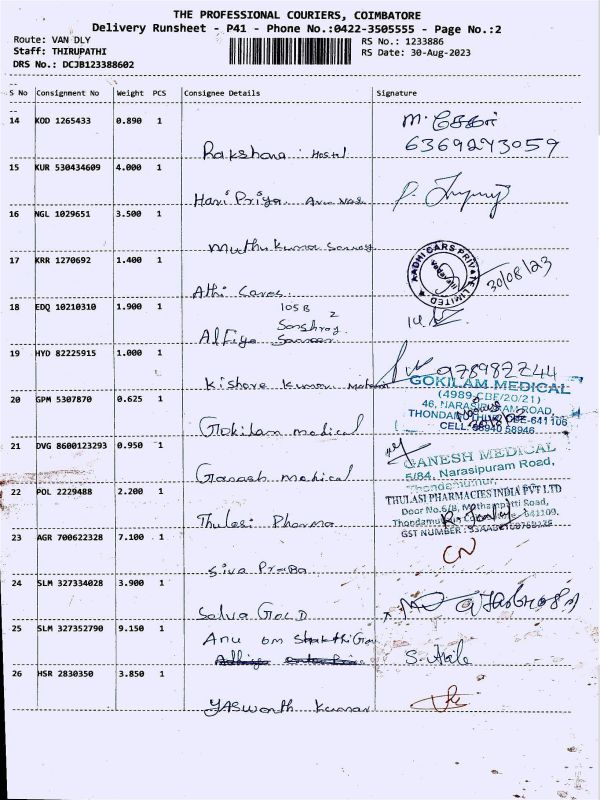 THE PROFESSIONAL COURIERS, COIMBATORE
Delivery Runsheet - P41 - Phone No.:0422-3505555 - Page No.:2
Route: VAN DLY
Staff: THIRUPATHI
DRS No.: DCJB123388602
RS No.: 1233886
RS Date: 30-Aug-2023
S No Consignment No Weight PCS Consignee Details Signature
14 KOD 1265433 0.890 1
Rakshana Hostel
6369273059
15 KUR 530434609 4.000 1
Hari Priya
16 NGL 1029651 3.500 1
Muthu Kumara
17 KRR 1270692 1.400 1
Athi Cares.
AADHI CARS PRIVATE LIMITED
30/08/23
18 EDQ 10210310 1.900 1
105B
2
Alfiya
19 HYD 82225915 1.000 1
Kishore Kumar
20 GPM 5307870 0.625 1
Gokilam medical
GOKILAM MEDICAL
(4989 CBE/20/21)
46, NARASIPURAM ROAD,
CELL 98940 58946
21 DVG 8600123293 0.950 1
Ganash medical
GANESH MEDICAL
5/84, Narasipuram Road,
Thondamuthur,
22 POL 2229488 2.200 1
Thulasi Pharma
THULASI PHARMACIES INDIA PVT LTD
Door No.6/8, Mathampatti Road,
GST NUMBER
23 AGR 700622328 7.100 1
Siva Praba
CN
24 SLM 327334028 3.900 1
Selva GOLD
25 SLM 327352790 9.150 1
Anu om Shakthi
S. Akila
26 HSR 2830350 3.850 1
YASWonth Kumar